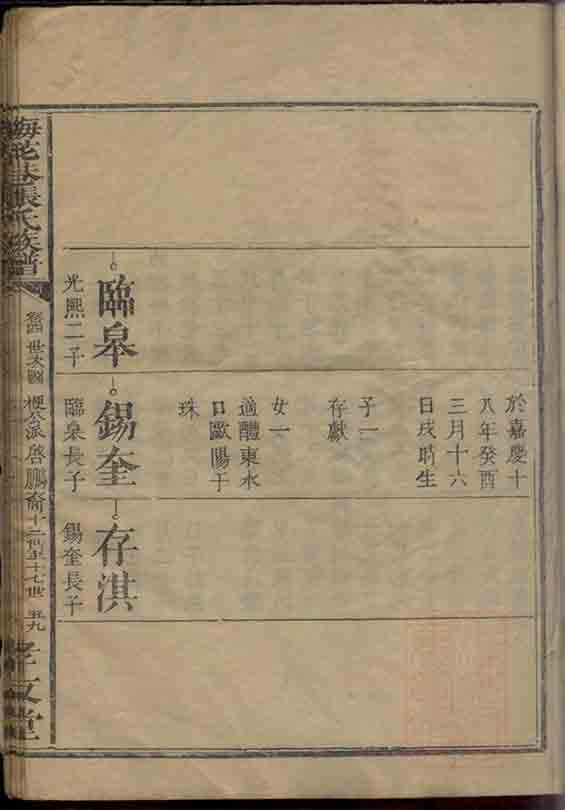 於嘉慶十
八年癸酉
三月十六
日戌時生
子一
存獻
女一
適醴東水
口歐陽于
珠
臨皋
光熙二子
錫奎
臨皋長子
存淇
錫奎長子
梅花𡊮張氏族譜
卷四 世次圖 梗公派啓鵬裔十三世至十七世 五九
孝友堂